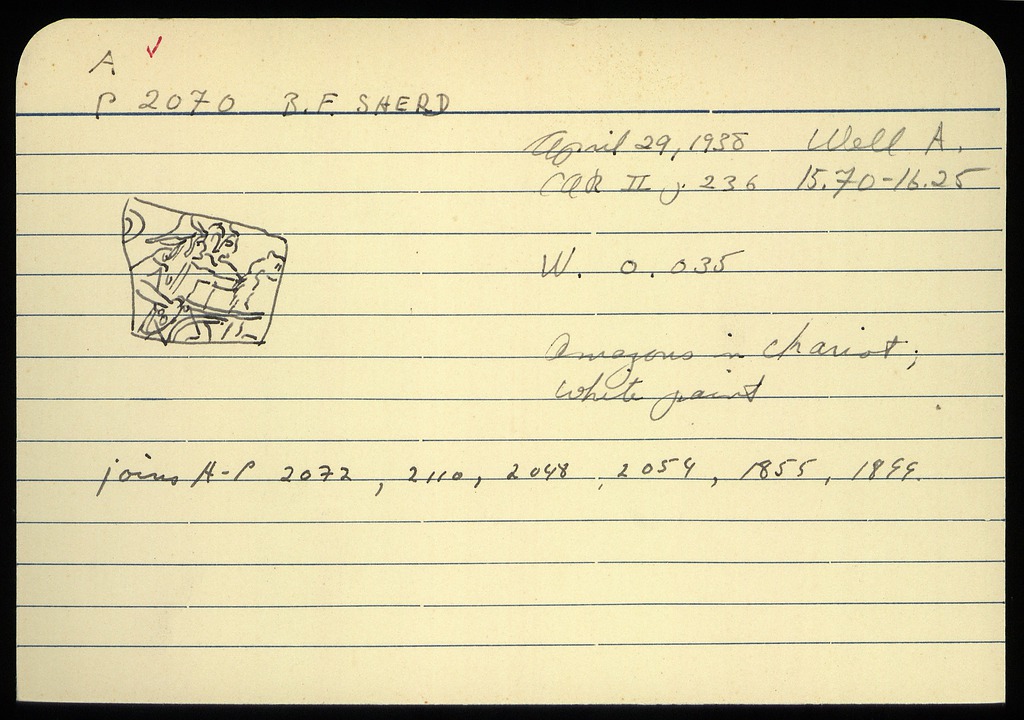 A ✓
P 2070 B.F. SHERD
April 29, 1938 Well A.
CAR II p. 236 15.70-16.25
W. 0.035
Amazons in chariot;
white paint
joins A-P 2072, 2110, 2048, 2054, 1855,